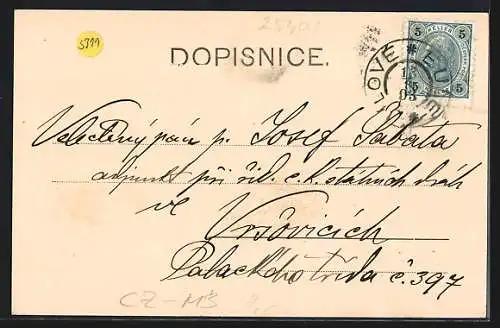 25401
5399
DOPISNICE.
5 HELLER 5
5 5
LOVÉ * EU
Veletěný pán p. Josef Šabata
adjunkt při řid. c.k. státních drah
ve
Vršovicích
Palackého třída č. 397
CZ-MB